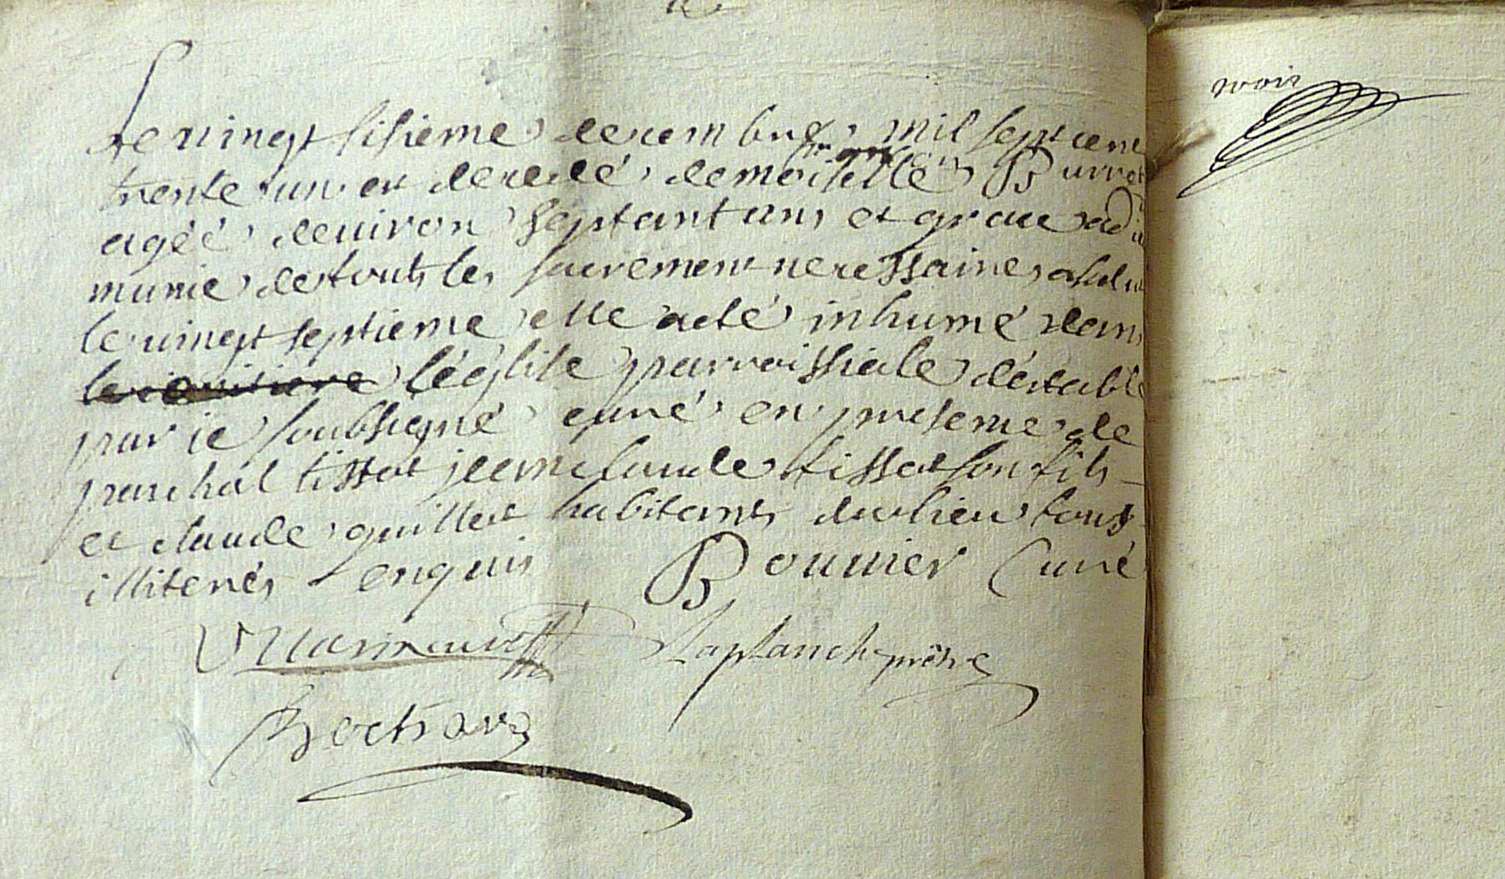 Le vingt sisieme decembre mil sept cent
trente un est decedé demoiselle Burret
agéé denviron septant ans et graue
munie de touts les sacrement necessaires
le vingt septieme elle a eté inhumé dans
le cimitiere l'églile parroissiale déstable
par ie soubsigné curé en presence de
paschal tissot jean claude tissot son fils
et claude quillet habitants du lieu tous
illiterés enquis Bouuier Curé
Laplanche prêtre
Bertrand